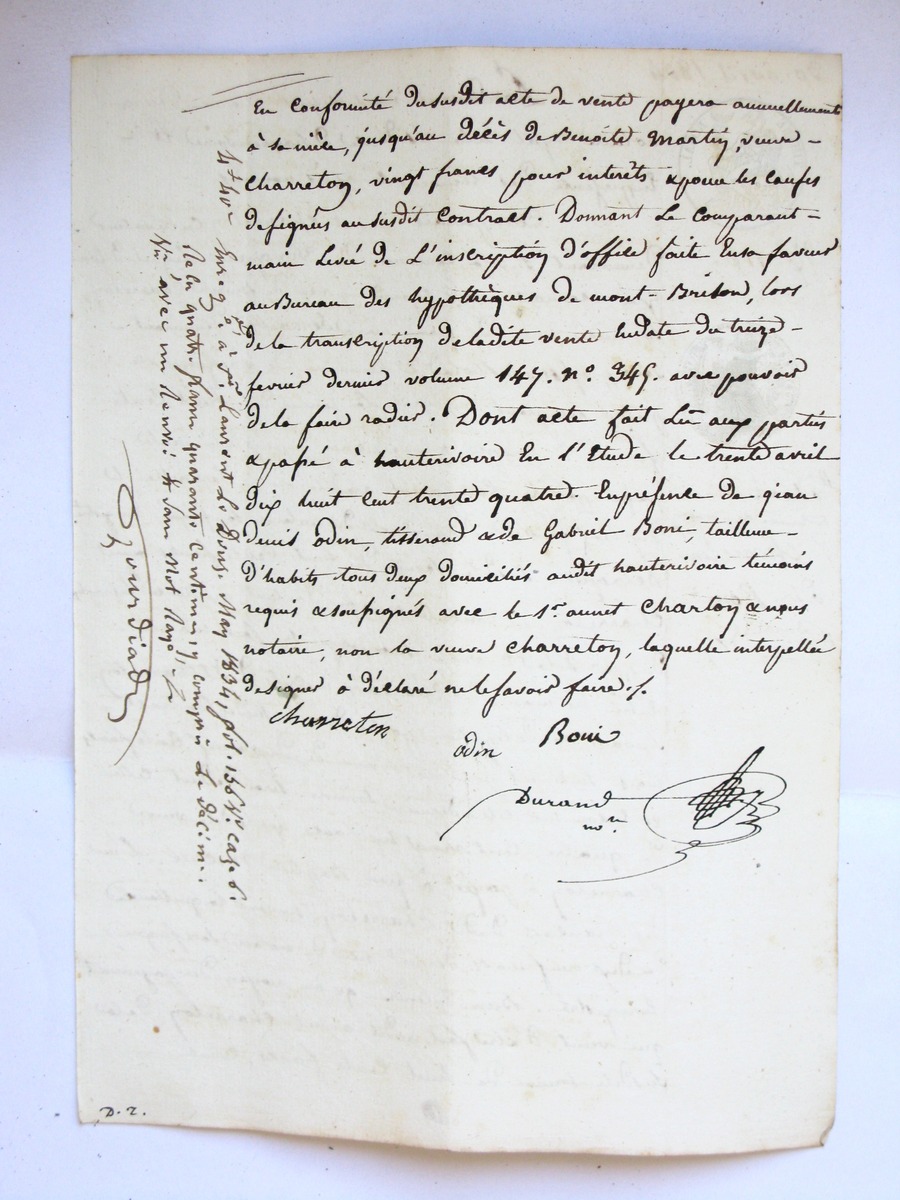 En conformité dususdit acte de vente payera annuellement
à sa mère, jusqu'au décès de Benoite Martin, veuve -
Charreton, vingt francs pour interets & pour les causes
designés au susdit contract. Donnant Le Comparant -
main Levée de L'inscription d'office faite en sa faveur
au Bureau des hypothèques de mont-Brison, lors
de la transcription de ladite vente En date du treize -
fevrier dernier volume 147. n.o 345. avec pouvoir
de la faire radier. Dont acte fait Lû aux parties
& passé à hauterivoire En l'Etude le trente avril
dix huit cent trente quatre. En présence de jean
denis odin, tisserand & de Gabriel Boni, tailleur -
d'habits tous deux domiciliés audit hauterivoire témoins
requis & soussignés avec le Sr. aunet Charton & nous
notaire, non la veuve Charreton, laquelle interpellée
de signer à déclaré ne le savoir faire ./.
Charreton
odin Boni
Durand
nore
4f 40c Enreg.é à St. Laurent Le Douze May 1834, fol. 156 V.o Case 6.
Reçu quatre francs quarante centimes, y compris Le décime.
avec un Renvoi & sans Mot Rayé
Jourdiade
D. 2.